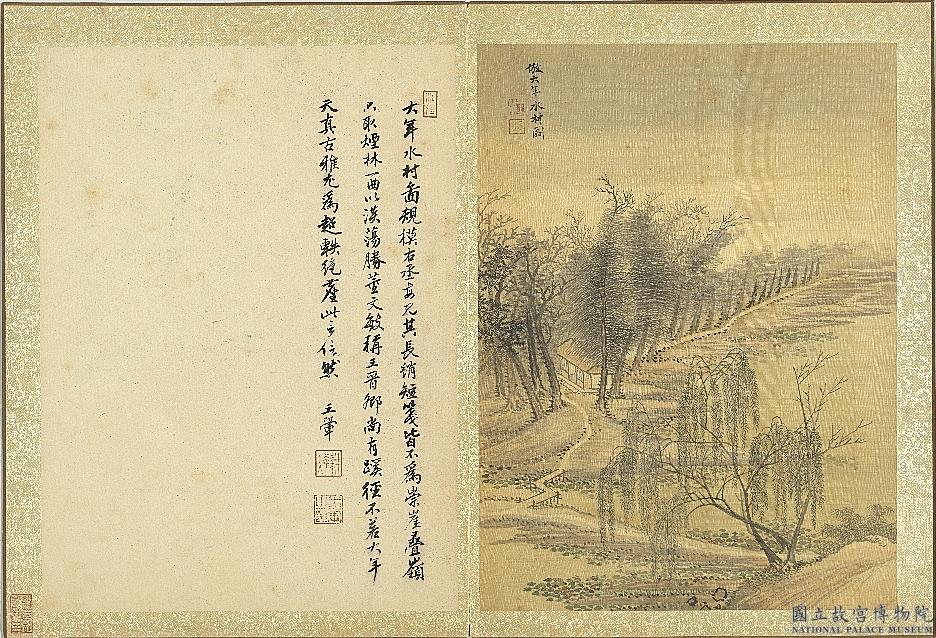 倣大年水村圖
大年水村啚規模右丞每見其長綃短箋皆不為崇崖疊嶺
只取煙林一曲以蕩勝董文敏稱王晉卿尚有蹊徑不若大年
天真古雅尤為超軼絕塵此言信然 王翬
國立故宮博物院
NATIONAL PALACE MUSEUM